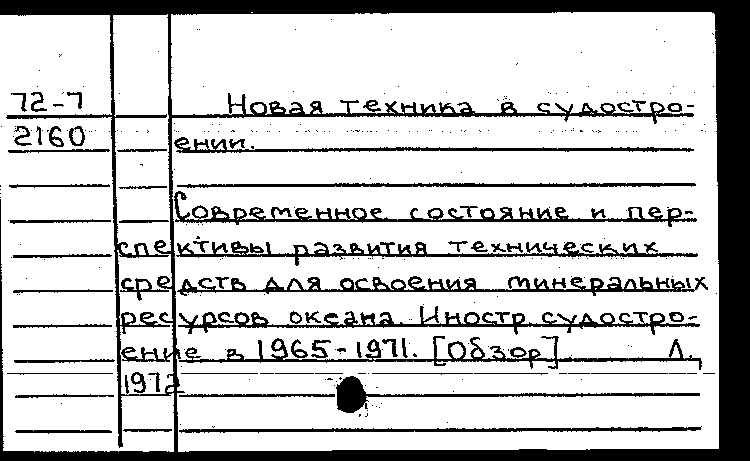 72-7 Новая техника в судостро-
2160 ении.
Современное состояние и пер-
спективы развития технических
средств для освоения минеральных
ресурсов океана. Иностр. судостро-
ение в 1965-1971. [Обзор] Л.,
1972